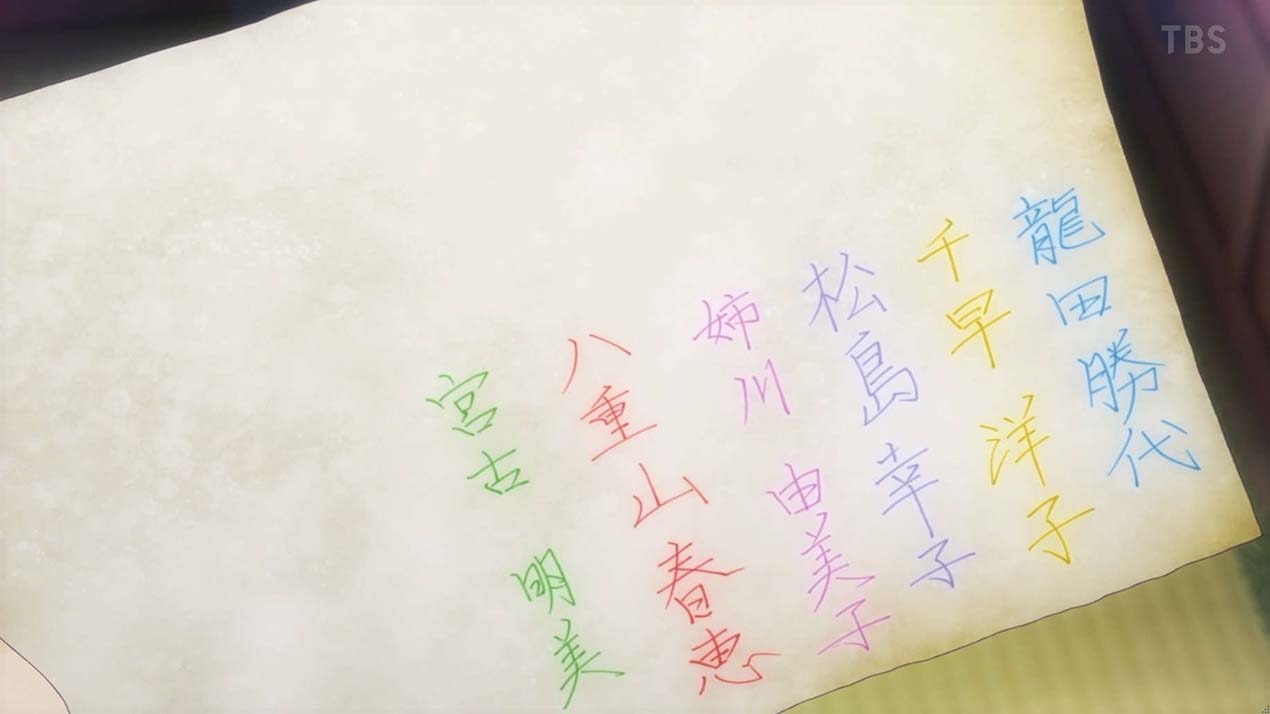 龍田勝代
千早 洋子
松島 幸子
姉川 由美子
八重山 春恵
宮古 明美
TBS